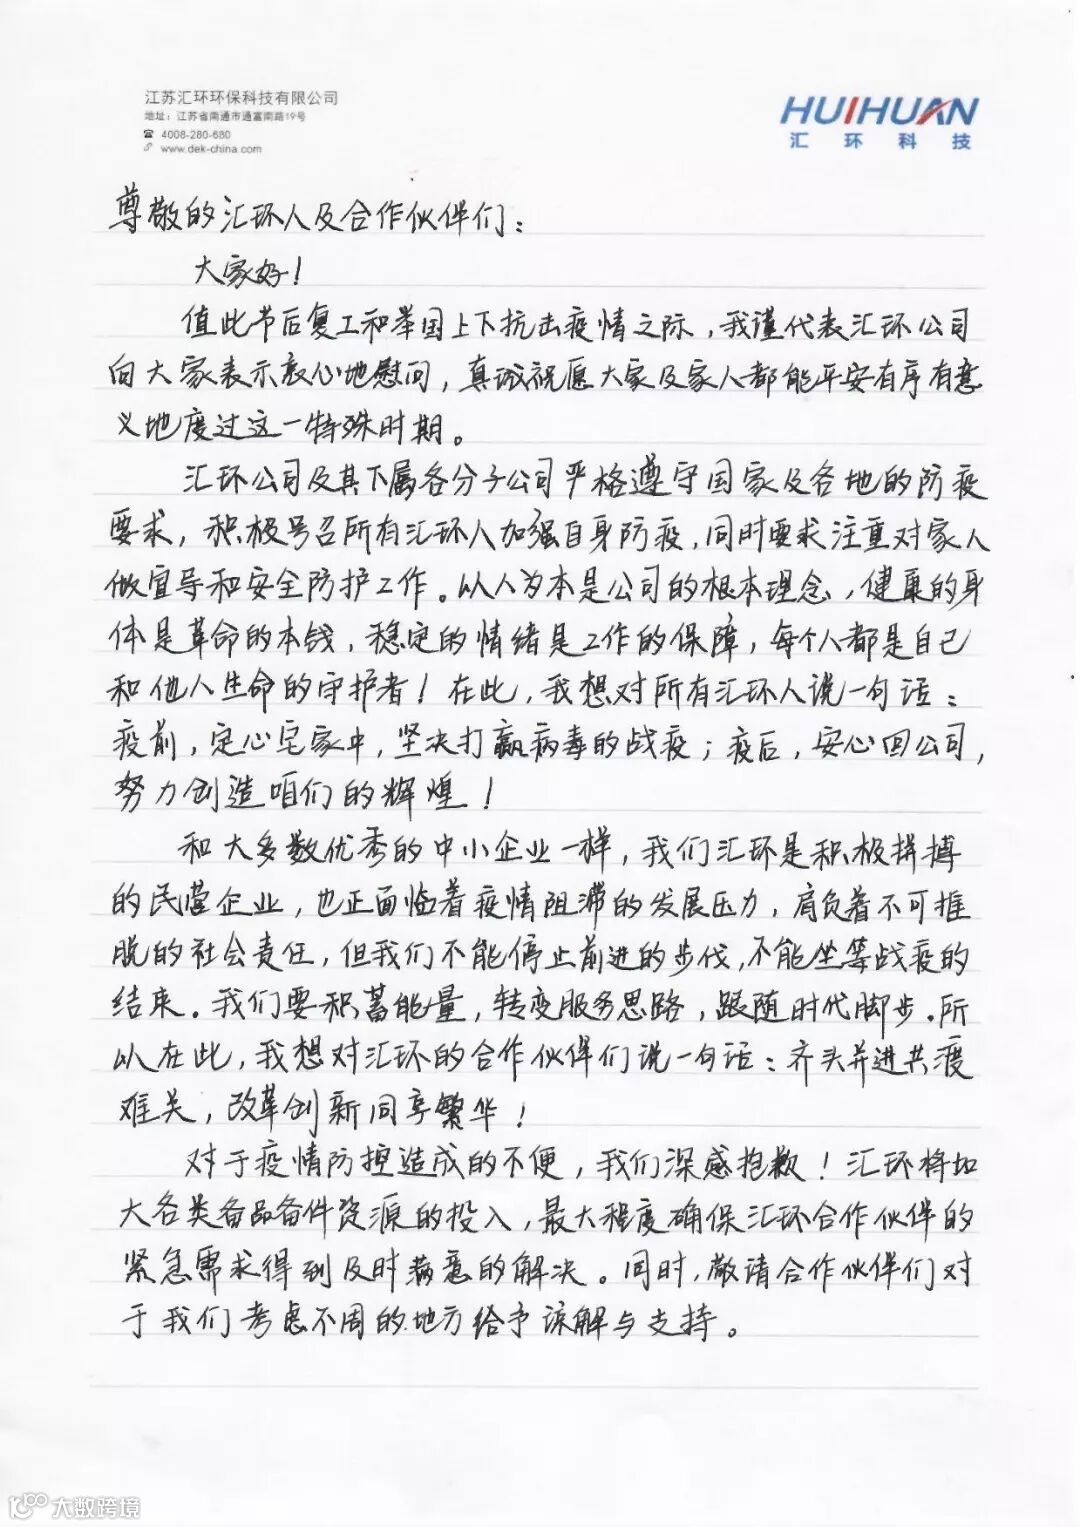 江苏汇环环保科技有限公司
地址：江苏省南通市通富南路19号
4008-280-680
www.dek-china.com
HUIHUAN
汇环科技
尊敬的汇环人及合作伙伴们：
大家好！
值此节后复工和举国上下抗击疫情之际，我谨代表汇环公司
向大家表示衷心地慰问，真诚祝愿大家及家人都能平安有序有意
义地度过这一特殊时期。
汇环公司及其下属各分子公司严格遵守国家及各地的防疫
要求，积极号召所有汇环人加强自身防疫，同时要求注重对家人
做宣导和安全防护工作。以人为本是公司的根本理念，健康的身
体是革命的本钱，稳定的情绪是工作的保障，每个人都是自己
和他人生命的守护者！在此，我想对所有汇环人说一句话：
疫前，定心宅家中，坚决打赢病毒的战疫；疫后，安心回公司，
努力创造咱们的辉煌！
和大多数优秀的中小企业一样，我们汇环是积极拼搏
的民营企业，也正面临着疫情阻滞的发展压力，肩负着不可推
脱的社会责任，但我们不能停止前进的步伐，不能坐等战疫的
结束。我们要积蓄能量，转变服务思路，跟随时代脚步。所
以在此，我想对汇环的合作伙伴们说一句话：齐头并进共渡
难关，改革创新同享繁华！
对于疫情防控造成的不便，我们深感抱歉！汇环将加
大各类备品备件资源的投入，最大程度确保汇环合作伙伴的
紧急需求得到及时满意的解决。同时，敬请合作伙伴们对
于我们考虑不周的地方给予谅解与支持。
大数跨境